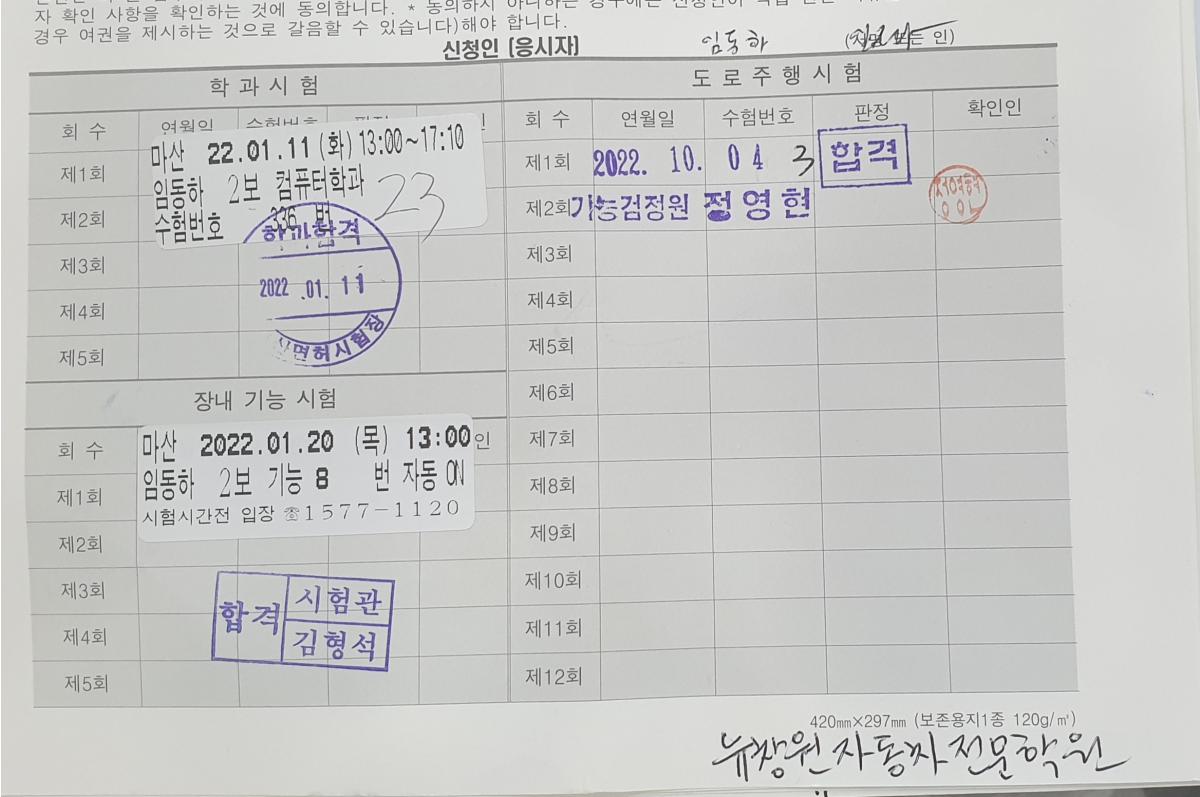 자 확인 사항을 확인하는 것에 동의합니다. * 동의하지 아니하는 경우에는 신청인이 직접
경우 여권을 제시하는 것으로 갈음할 수 있습니다)해야 합니다.
신청인 (응시자) 임동하 (서명 또는 인)
학 과 시 험
회 수 연월일 수험번호 판정
마산 22.01.11 (화) 13:00~17:10
임동하 2보 컴퓨터학과 23
수험번호 336 번
제1회
제2회
제3회
제4회
제5회
학과합격
2022 .01. 11
면허시험장
장내 기능 시험
회 수 인
마산 2022.01.20 (목) 13:00
임동하 2보 기능 8 번 자동 ON
시험시간전 입장 ☏1577-1120
제1회
제2회
제3회
제4회
제5회
합격 시험관
김형석
도 로 주 행 시 험
회 수 연월일 수험번호 판정 확인인
제1회 2022. 10. 04 3 합격
제2회 기능검정원 정영현
제3회
제4회
제5회
제6회
제7회
제8회
제9회
제10회
제11회
제12회
420㎜×297㎜ (보존용지1종 120g/㎡)
뉴창원자동차전문학원